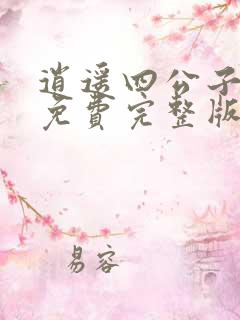 逍遥四公子
免费完整版
易容